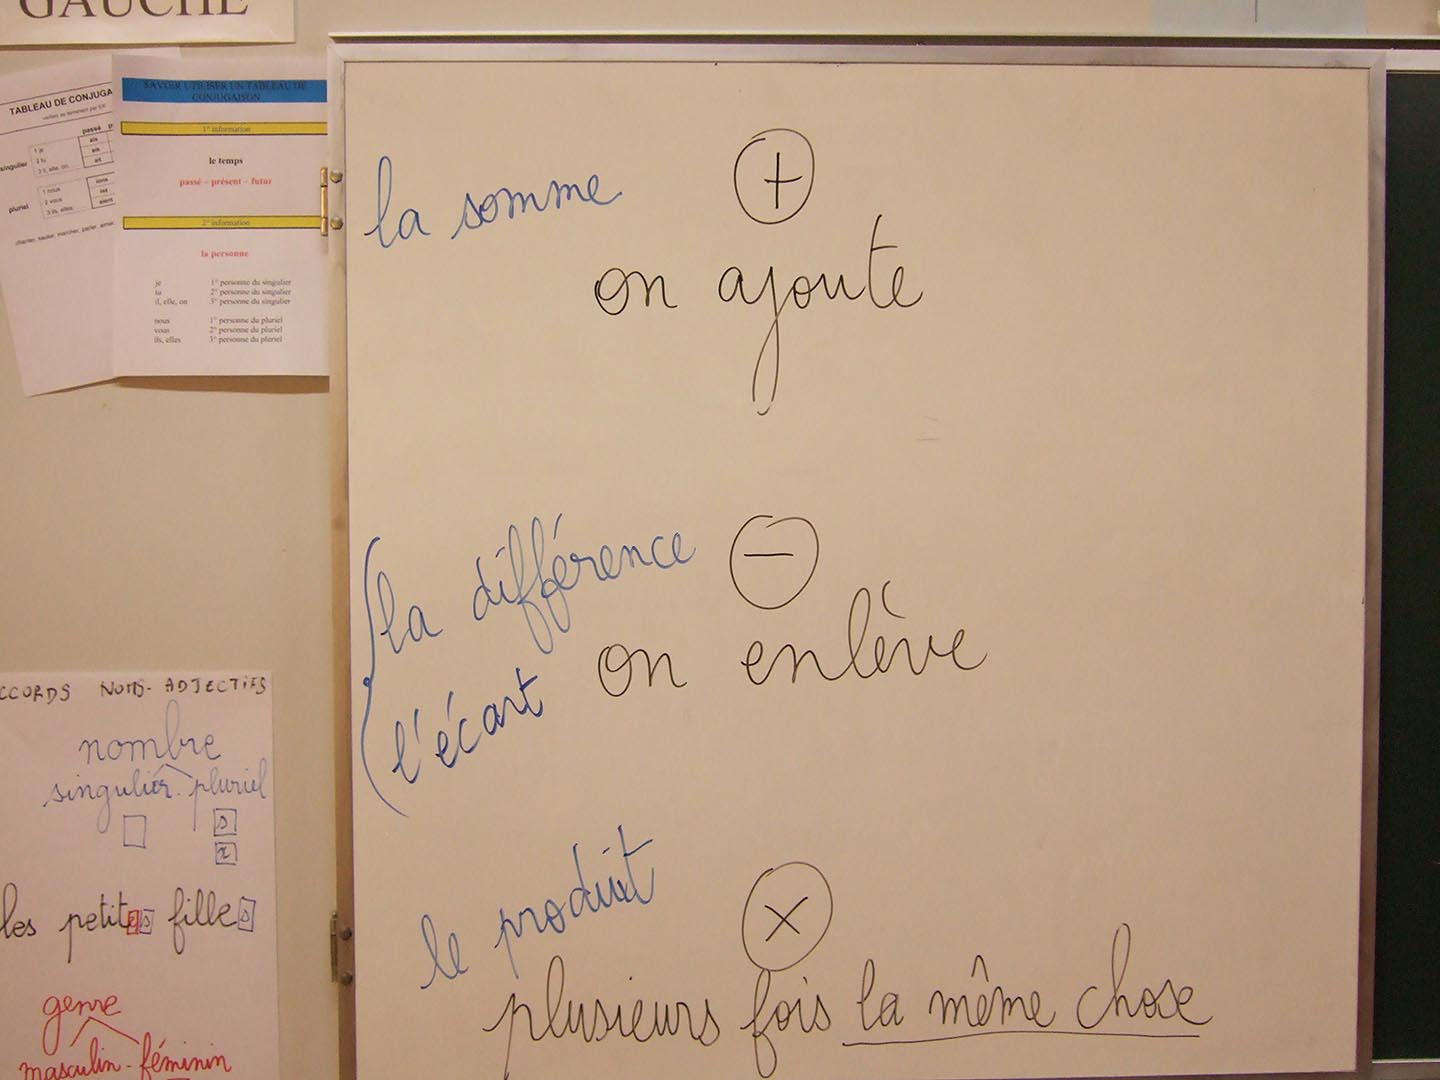 GAUCHE
TABLEAU DE CONJUGA
passé
singulier
1 je
ais
2 tu
ais
3 il, elle, on
ait
pluriel
1 nous
ions
2 vous
iez
3 ils, elles,
aient
chanter, sauter, marcher, parler, aimer
SAVOIR UTILISER UN TABLEAU DE
CONJUGAISON
1° information
le temps
passé – présent – futur
2° information
la personne
je 1° personne du singulier
tu 2° personne du singulier
il, elle, on 3° personne du singulier
nous 1° personne du pluriel
vous 2° personne du pluriel
ils, elles 3° personne du pluriel
la somme +
on ajoute
la différence −
l'écart
on enlève
le produit ×
plusieurs fois la même chose
CCORDS NOMS-ADJECTIFS
nombre
singulier pluriel
s
x
les petites filles
genre
masculin - féminin